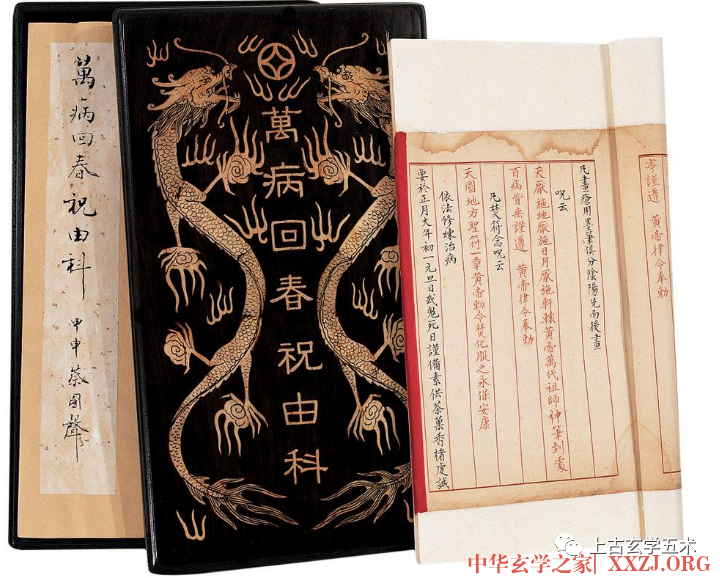 萬病回春祝由科
甲申蔡國聲
萬病回春祝由科
寄謹遵 黃帝律令奉勅
凡畫瘡用墨筆俱分陰陽先而後畫
呪云
天厭施地厭施日月厭施軒轅黃帝萬代祖師神筆到處
百病皆無謹遵 黃帝律令奉勅
凡焚符念呪云
天圓地方聖符一章黃帝勅令焚化服之永保安康
依法修煉治病
要於正月大年初一元旦日或鬼死日謹備素供茶菓香楮虔誠
上古玄学五术
中华玄学之家| XXZJ.ORG